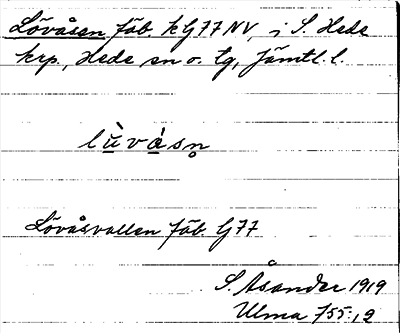 Lövåsen fäb. kG77NV, i S. Hede
krp., Hede sn o. tg, Jämtl. l.
lùvásn̥
Lövåsvallen fäb G77
S. Åsander 1919
Ulma 755:12